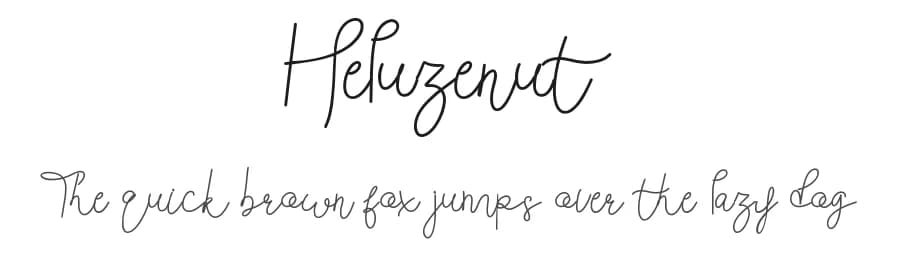 Heluzenut
The quick brown fox jumps over the lazy dog